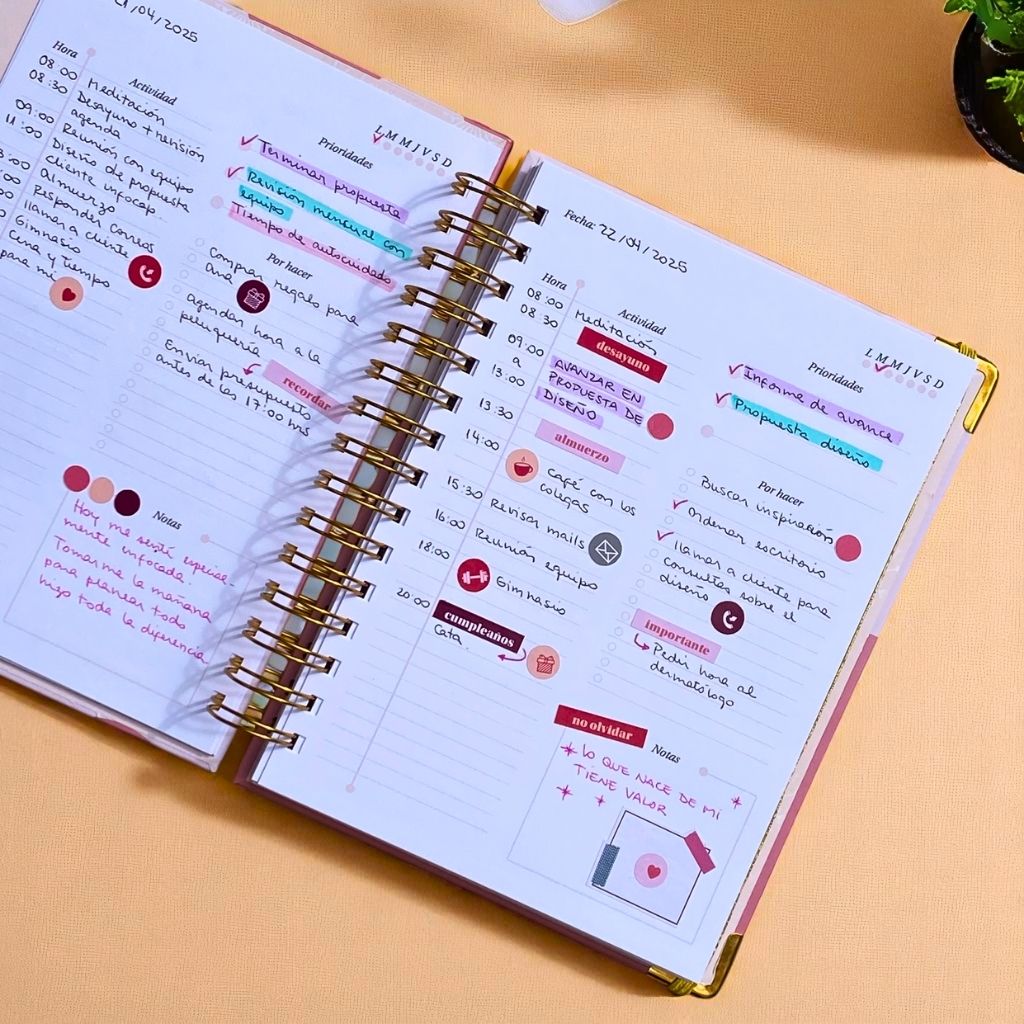 21/04/2025
Hora
Actividad
08:00
Meditación
08:30
Desayuno + revisión
agenda
09:00
Reunión con equipo
11:00
Diseño de propuesta
cliente infocap.
Almuerzo
Responder correos
llamar a cliente
Gimnasio
Cena y tiempo
para mi
L M M J V S D
Prioridades
Terminar propuesta
Revisión mensual con
equipo
Tiempo de autocuidado
Por hacer
Comprar regalo para
Ana
agendar hora a la
peluquería
recordar
Enviar presupuesto
antes de las 17:00 hrs
Notas
Hoy me sentí especial-
mente enfocada.
Tomarme la mañana
para planear todo
hizo toda la diferencia
Fecha: 22/04/2025
Hora
Actividad
08:00
Meditación
08:30
desayuno
09:00
a
13:00
AVANZAR EN
PROPUESTA DE
DISEÑO
13:30
almuerzo
14:00
Café con los
colegas
15:30
Revisar mails
16:00
Reunión equipo
18:00
Gimnasio
20:00
cumpleaños
Cata.
L M M J V S D
Prioridades
Informe de avance
Propuesta diseño
Por hacer
Buscar inspiración
Ordenar escritorio
llamar a cliente para
consultas sobre el
diseño
importante
Pedir hora al
dermatólogo
no olvidar
Notas
LO QUE NACE DE MÍ
TIENE VALOR